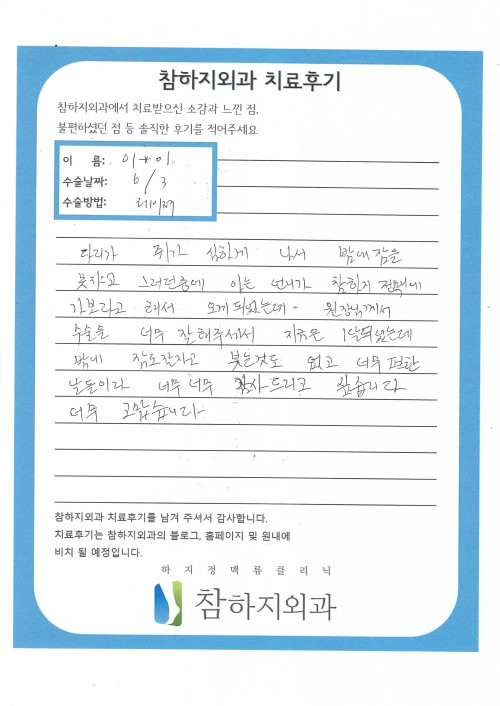 참하지외과 치료후기
참하지외과에서 치료받으신 소감과 느낀 점,
불편하셨던 점 등 솔직한 후기를 적어주세요
이 름: 이*이
수술날짜: 6/3
수술방법: 레이저
다리가 쥐가 심하게 나서 밤에 잠을
못자고 그러던중에 아는 언니가 참하지 정맥에
가보라고 해서 오게 되었는데- 원장님께서
수술을 너무 잘해주셔서 지금은 1달되었는데
밤에 잠도잘자고 붓는것도 없고 너무 편한
날들이라 너무 너무 감사드리고 싶습니다
너무 고맙습니다-
참하지외과 치료후기를 남겨 주셔서 감사합니다.
치료후기는 참하지외과의 블로그, 홈페이지 및 원내에
비치 될 예정입니다.
하지정맥류클리닉
참하지외과